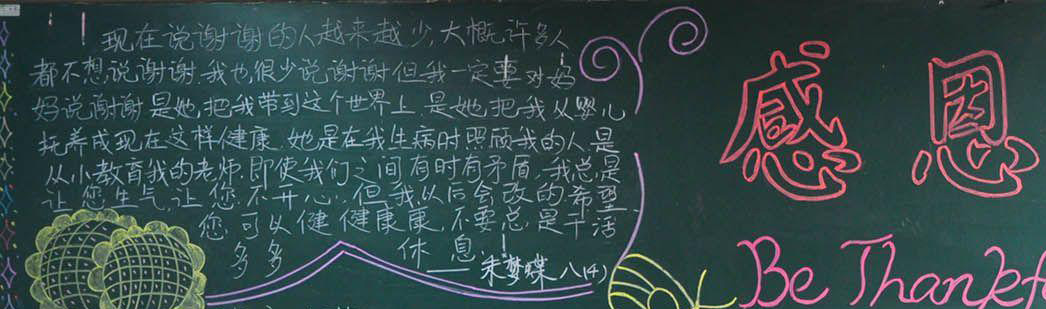 现在说谢谢的人越来越少，大概许多人
都不想说谢谢，我也很少说谢谢但我一定要对妈
妈说谢谢是她，把我带到这个世界上，是她，把我从婴儿
抚养成现在这样健康，她是在我生病时照顾我的人，是
从小教育我的老师，即使我们之间有时有矛盾，我总是
让您生气，让您不开心，但我从后会改的希望
您可以健健康康，不要总是干活
多多休息
——朱梦蝶 八(4)
感恩
Be Thankf